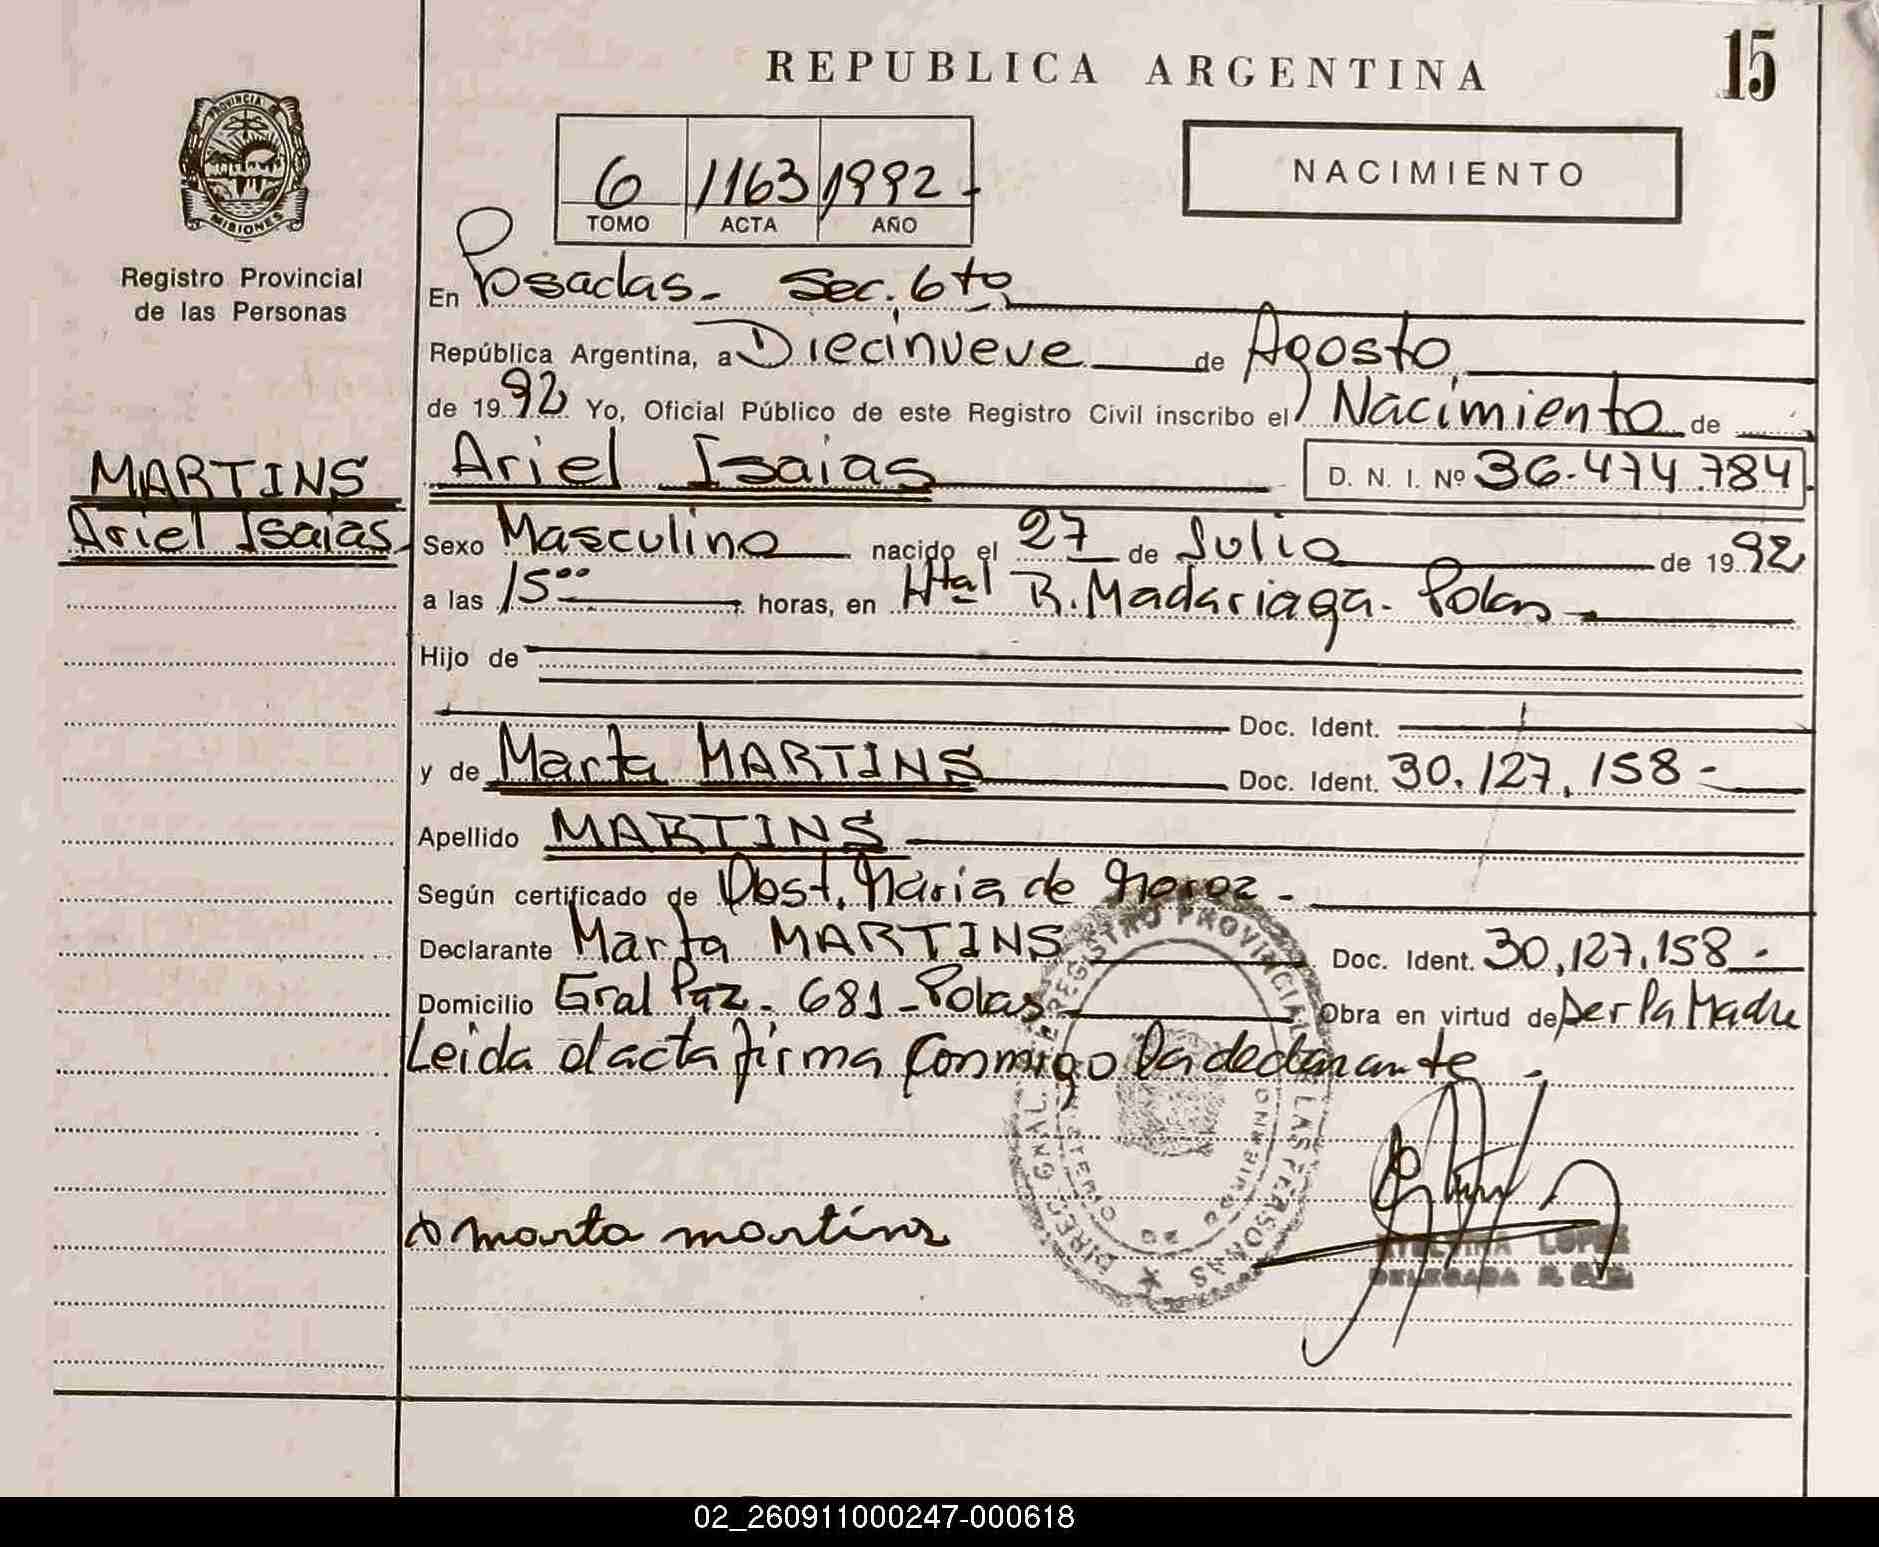 REPUBLICA ARGENTINA
15
PROVINCIA
MISIONES
Registro Provincial
de las Personas
6 1163 1992-
TOMO ACTA AÑO
NACIMIENTO
En Posadas- Sec. 6ta
República Argentina, a Diecinueve de Agosto
de 1992 Yo, Oficial Público de este Registro Civil inscribo el Nacimiento de
MARTINS
Ariel Isaias
Ariel Isaias D. N. I. Nº 36.474.784
Sexo Masculino nacido el 27 de Julio de 1992
a las 15 00 horas, en Htal R. Madariaga- Pdas
Hijo de
Doc. Ident.
y de Marta MARTINS Doc. Ident. 30.127.158-
Apellido MARTINS
Según certificado de Obst. Maria de
Declarante Marta MARTINS Doc. Ident. 30.127.158-
Domicilio Gral Paz- 681- Pdas Obra en virtud de ser la Madre
Leida el acta firma conmigo la declarante
DIREC. GNAL. DE REGISTRO PROVINCIAL DE LAS PERSONAS
marta martins
LOPEZ
DELEGADA
02_260911000247-000618